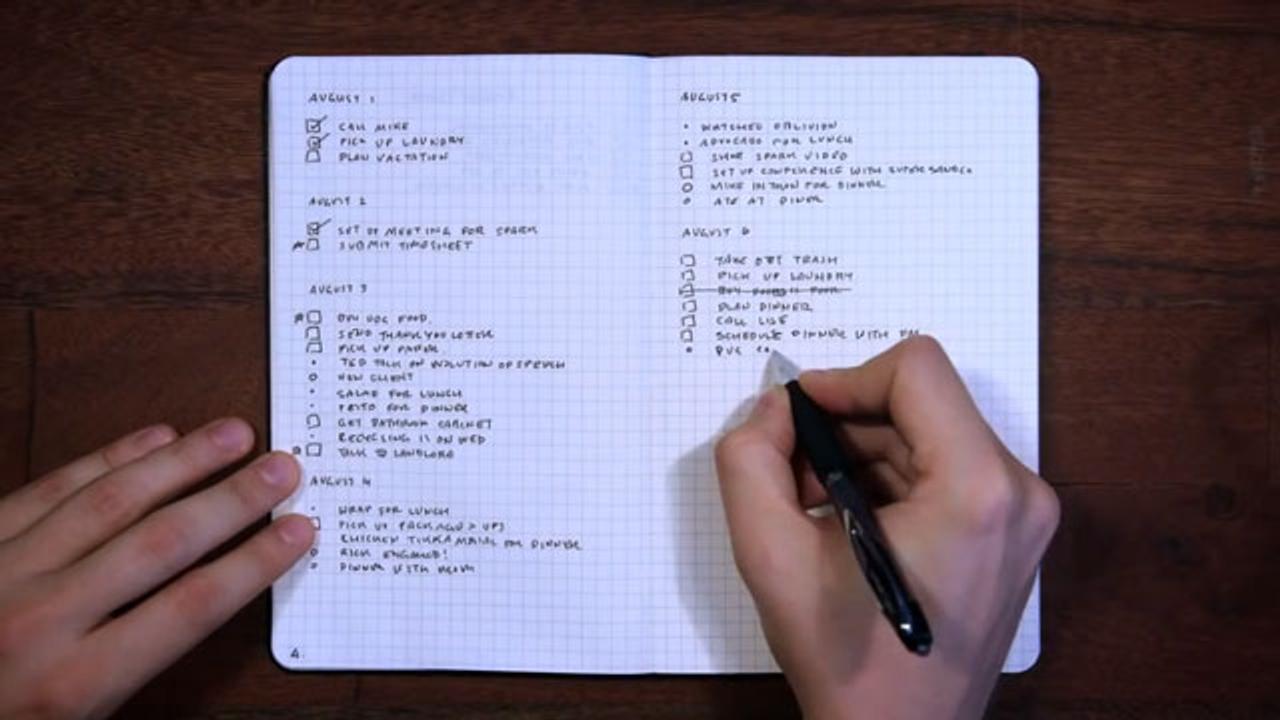 AUGUST 1
CALL MIKE
PICK UP LAUNDRY
PLAN VACTATION
AUGUST 2
SET UP MEETING FOR SPARK
SUBMIT TIMESHEET
AUGUST 3
BUY DOG FOOD
SEND THANK YOU LETTER
PICK UP PAPER
TED TALK ON EVOLUTION OF SPEECH
NEW CLIENT
SALAD FOR LUNCH
FOR DINNER
GET BATHROOM CABINET
RECYCLING IS ON WED
TALK TO LANDLORD
AUGUST 4
WRAP FOR LUNCH
PICK UP PACKAGE > UPS
CHICKEN TIKKA MASALA FOR DINNER
RICK ENGAGED!
DINNER WITH
4.
AUGUST 5
WATCHED OBLIVION
AVOCADO FOR LUNCH
SPARK VIDEO
SET UP CONFERENCE WITH
MIKE IN TOWN FOR DINNER
ATE AT DINER
AUGUST 6
TAKE OUT TRASH
PICK UP LAUNDRY
BUY
PLAN DINNER
CALL LISE
SCHEDULE DINNER WITH